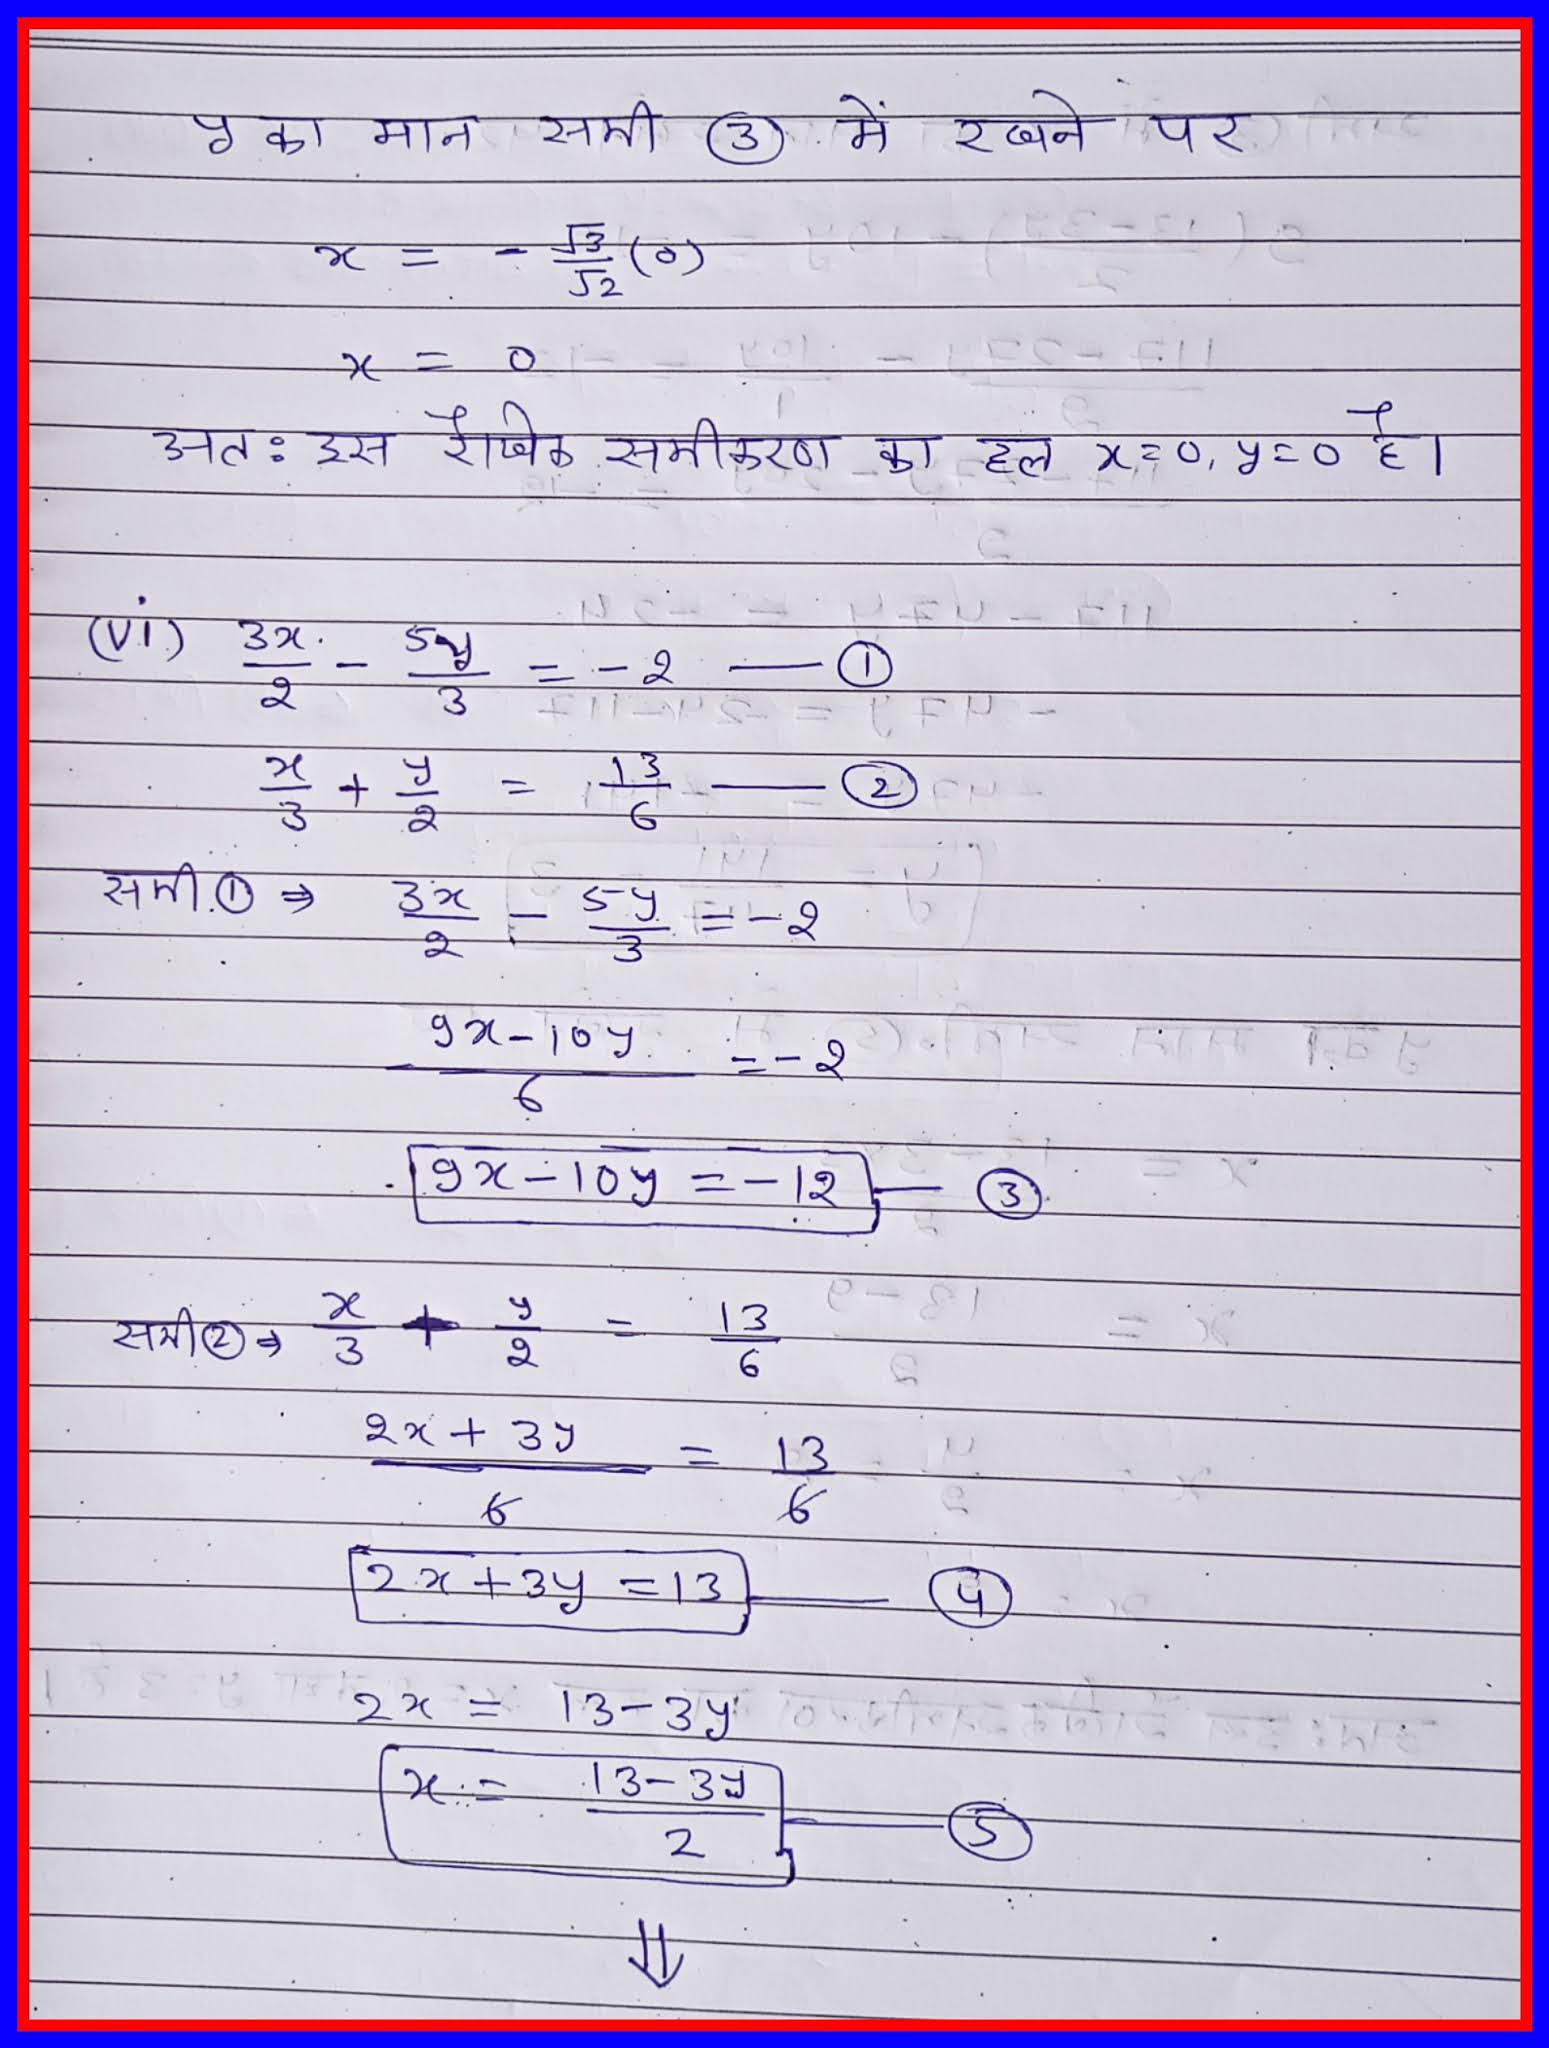 y का मान समी ③ में रखने पर
x = - √3/√2 (0)
x = 0
अतः इस रैखिक समीकरण का हल x=0, y=0 है।
(vi) 3x/2 - 5y/3 = -2 — ①
x/3 + y/2 = 13/6 — ②
समी.① ⇒ 3x/2 - 5y/3 = -2
9x-10y/6 = -2
9x-10y = -12 — ③
समी② ⇒ x/3 + y/2 = 13/6
2x+3y/6 = 13/6
2x+3y = 13 — ④
2x = 13-3y
x = 13-3y/2 — ⑤
⇓